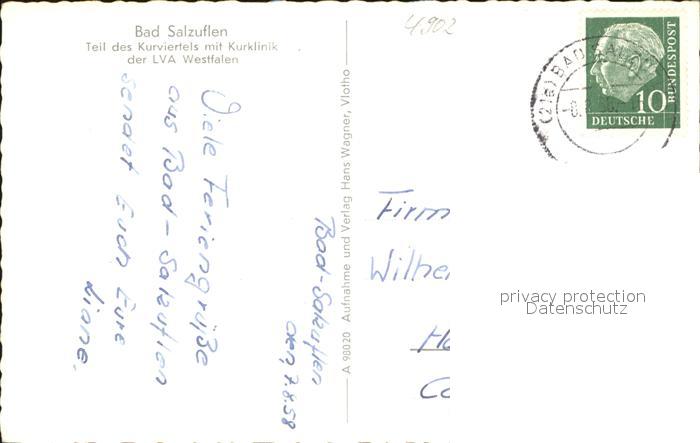 Bad Salzuflen
Teil des Kurviertels mit Kurklinik
der LVA Westfalen
4.902
Viele Feriengrüße
aus Bad-Salzuflen
sendet Euch Eure
Liane.
Bad-Salzuflen
den, 7.8.58
A 98020 Aufnahme und Verlag Hans Wagner, Vlotho
(21a) BAD SALZ
10
DEUTSCHE
BUNDESPOST
Firm
Wilhe
Ha
Co
privacy protection
Datenschutz